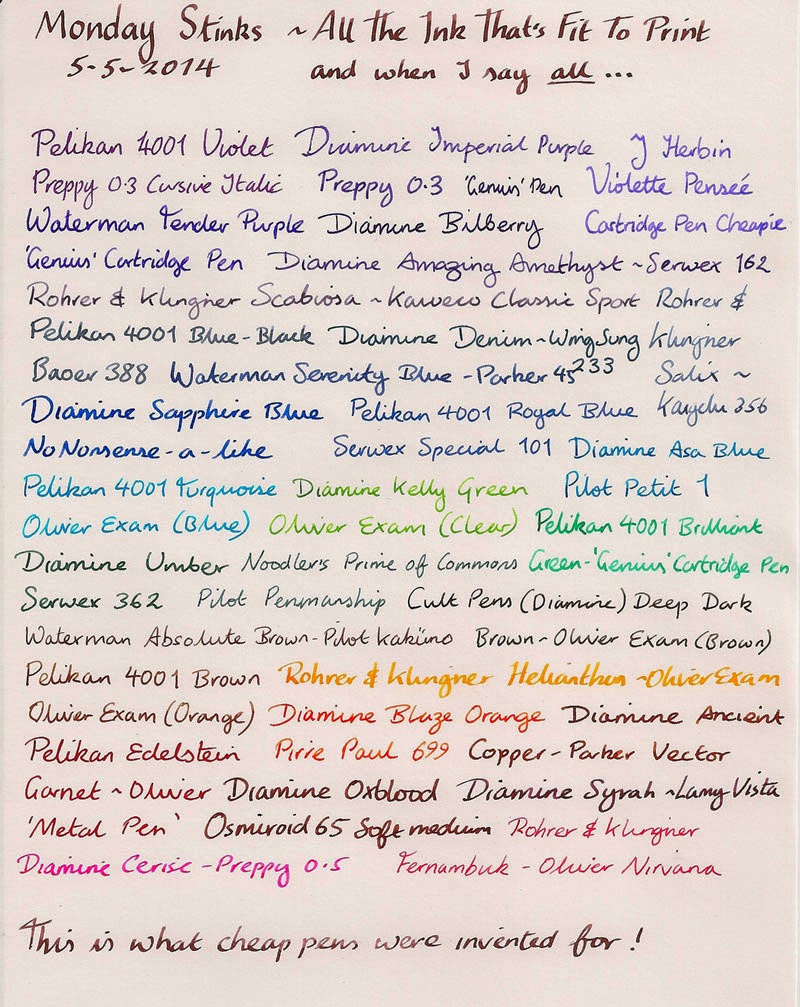 Monday Stinks ~ All The Ink That's Fit To Print
5-5-2014 and when I say all...
Pelikan 4001 Violet Diamine Imperial Purple J Herbin
Preppy 0.3 Cursive Italic Preppy 0.3 'Genius' Pen Violette Penseé
Waterman Tender Purple Diamine Bilberry Cartridge Pen Cheapie
'Genius' Cartridge Pen Diamine Amazing Amethyst ~ Serwex 162
Rohrer & Klingner Scabiosa ~ Kaweco Classic Sport Rohrer &
Pelikan 4001 Blue-Black Diamine Denim ~ Wing Sung Klingner
Baoer 388 Waterman Serenity Blue - Parker 45 233 Salix ~
Diamine Sapphire Blue Pelikan 4001 Royal Blue Kaigelu 356
No Nonsense-a-like Serwex Special 101 Diamine Asa Blue
Pelikan 4001 Turquoise Diamine Kelly Green Pilot Petit 1
Oliver Exam (Blue) Oliver Exam (Clear) Pelikan 4001 Brilliant
Diamine Umber Noodler's Prime of Commons Green-'Genius' Cartridge Pen
Serwex 362 Pilot Penmanship Cult Pens (Diamine) Deep Dark
Waterman Absolute Brown - Pilot Kaküno Brown ~ Oliver Exam (Brown)
Pelikan 4001 Brown Rohrer & Klingner Helianthus ~ Oliver Exam
Oliver Exam (Orange) Diamine Blaze Orange Diamine Ancient
Pelikan Edelstein Pirre Paul 699 Copper - Parker Vector
Garnet ~ Oliver Diamine Oxblood Diamine Syrah ~ Lamy Vista
'Metal Pen' Osmiroid 65 Soft medium Rohrer & Klingner
Diamine Cerise - Preppy 0.5 Fernambuk - Oliver Nirvana
This is what cheap pens were invented for!